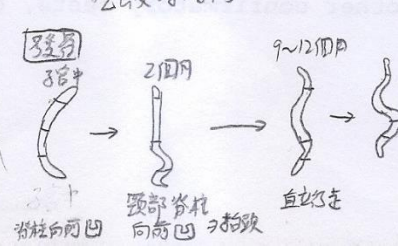 發育
子宮中
2個月
9~12個月
脊柱向前凹
頸部脊柱
向前凹 → 抬頭
直立行走